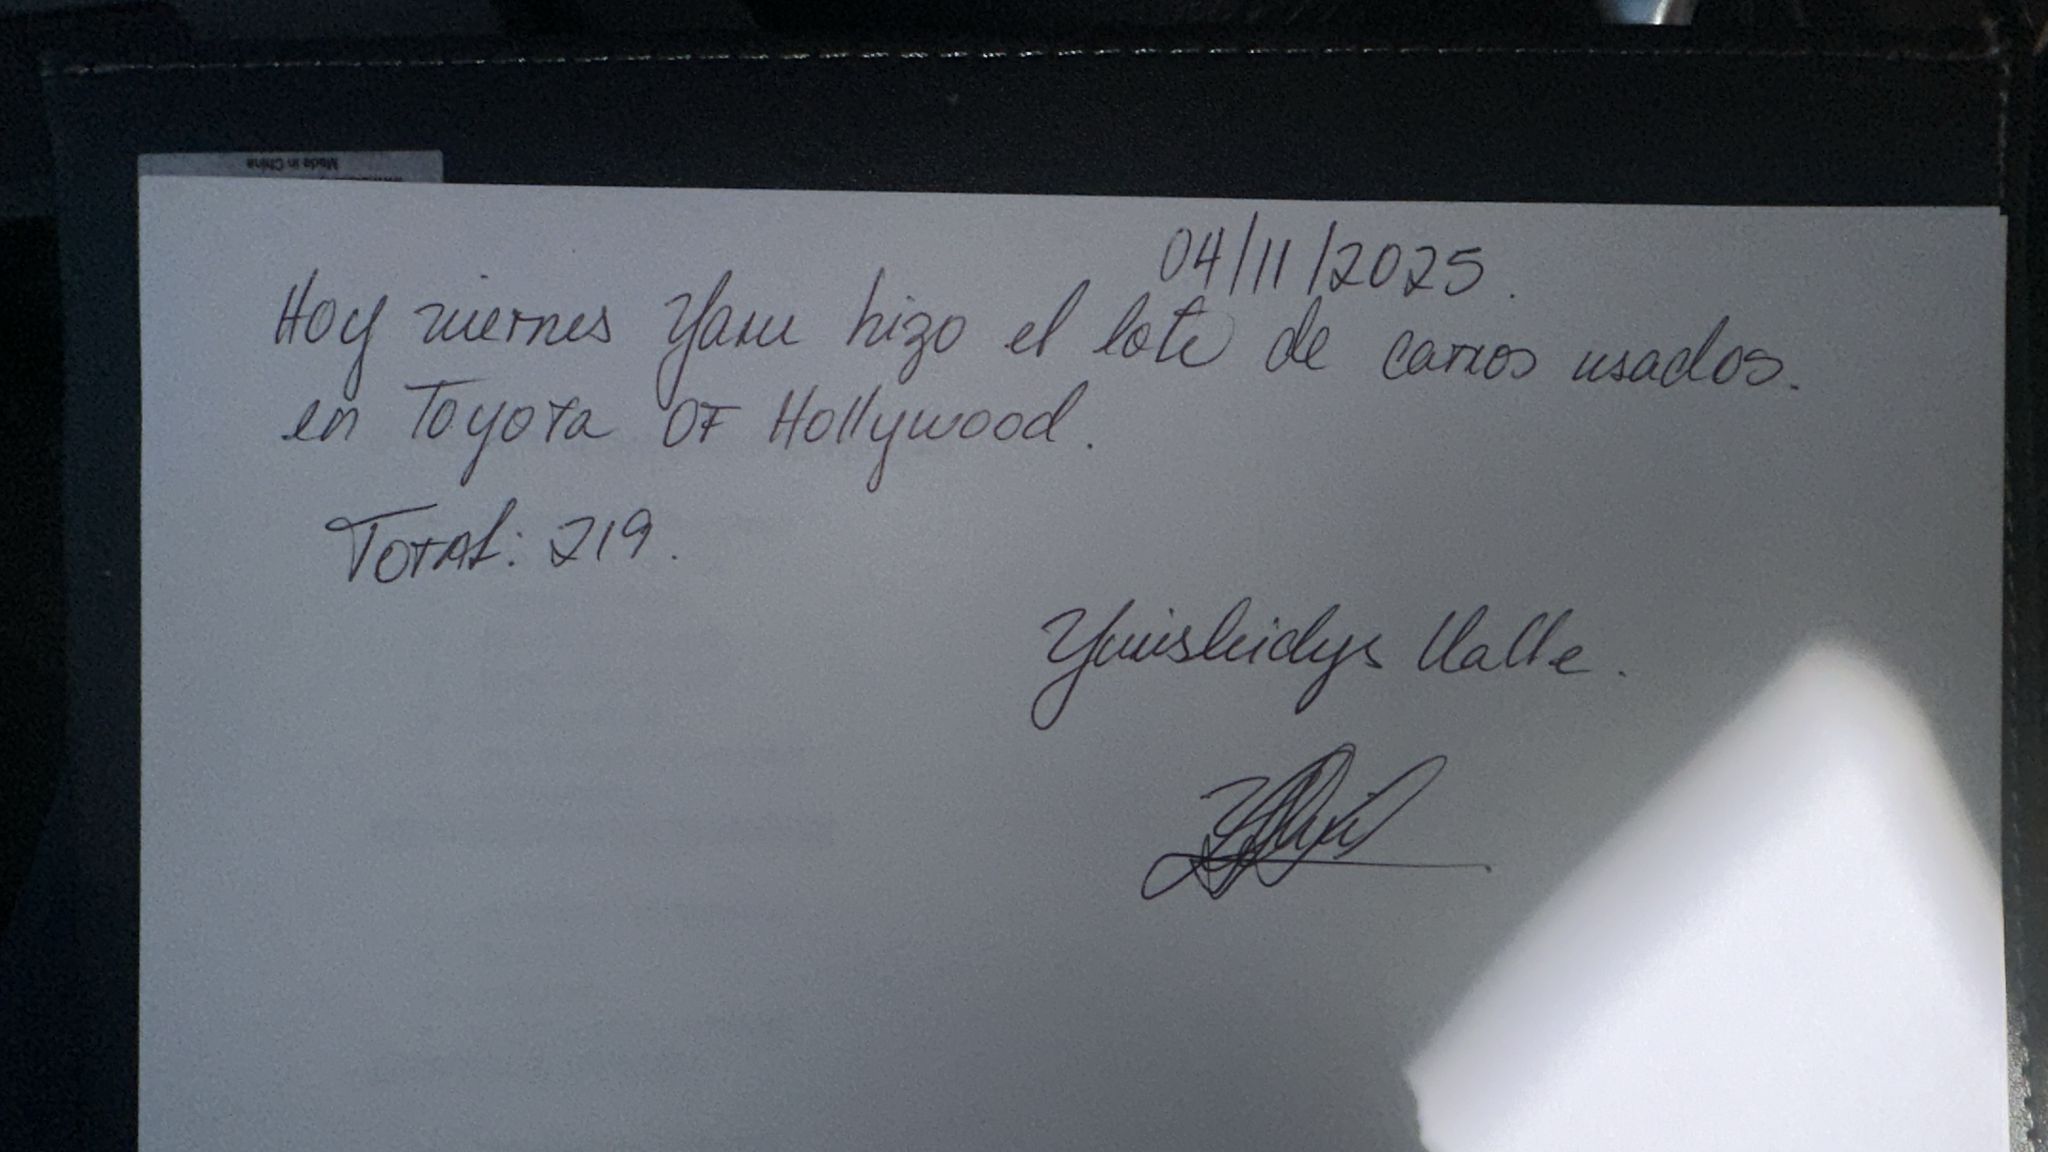 Made in China
04/11/2025.
Hoy viernes Yasu hizo el lote de carros usados.
en Toyota OF Hollywood.
Total: 219.
Yunisleidys Valle.